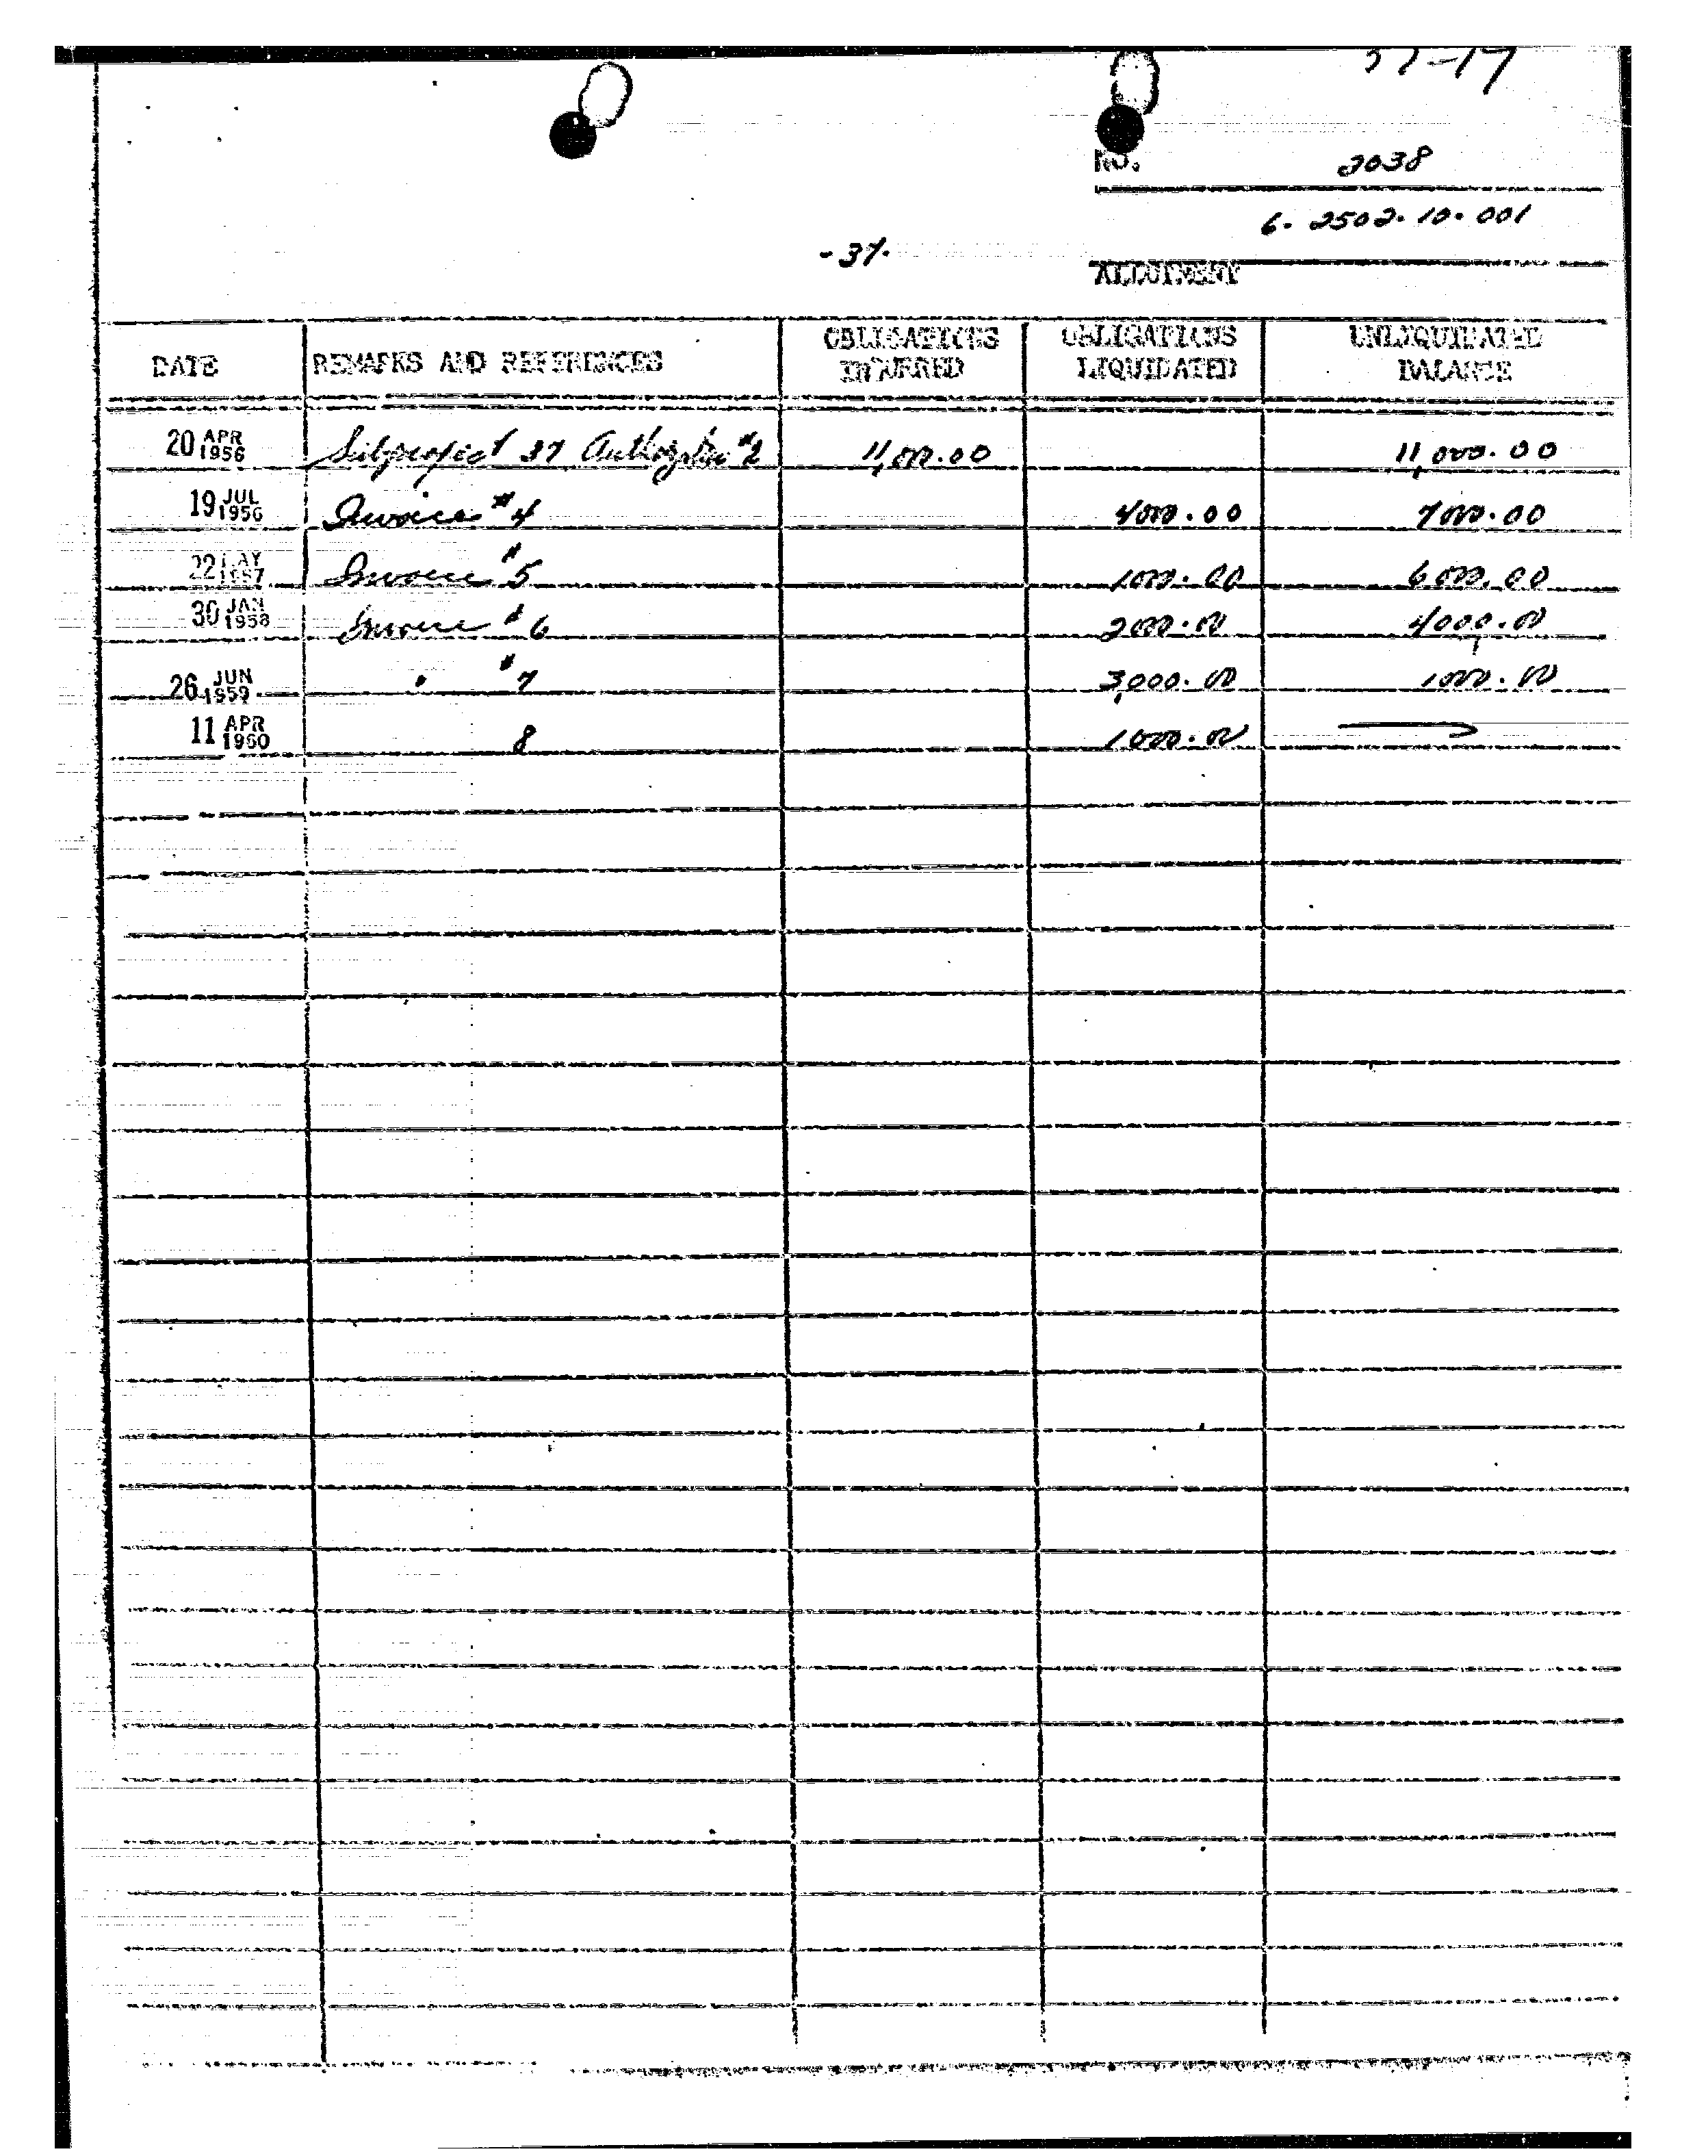 37-17
NO. 2038
6. 2502. 10. 001
- 37.
ALLOTMENT
DATE REMARKS AND REFERENCES OBLIGATIONS INCURRED OBLIGATIONS LIQUIDATED UNLIQUIDATED BALANCE
20 APR 1956 Subproject 37 #2 11,000.00 11,000.00
19 JUL 1956 Invoice #4 4000.00 7000.00
22 MAY 1957 Invoice #5 1000.00 6000.00
30 JAN 1958 Invoice #6 2000.00 4000.00
26 JUN 1959 " #7 3,000.00 1000.00
11 APR 1960 8 1000.00